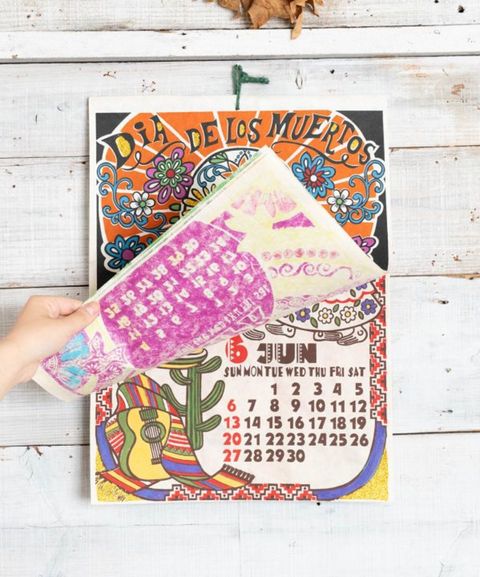 DIA DE LOS MUERTOS
6 JUN
SUN MON TUE WED THU FRI SAT
1 2 3 4 5
6 7 8 9 10 11 12
13 14 15 16 17 18 19
20 21 22 23 24 25 26
27 28 29 30